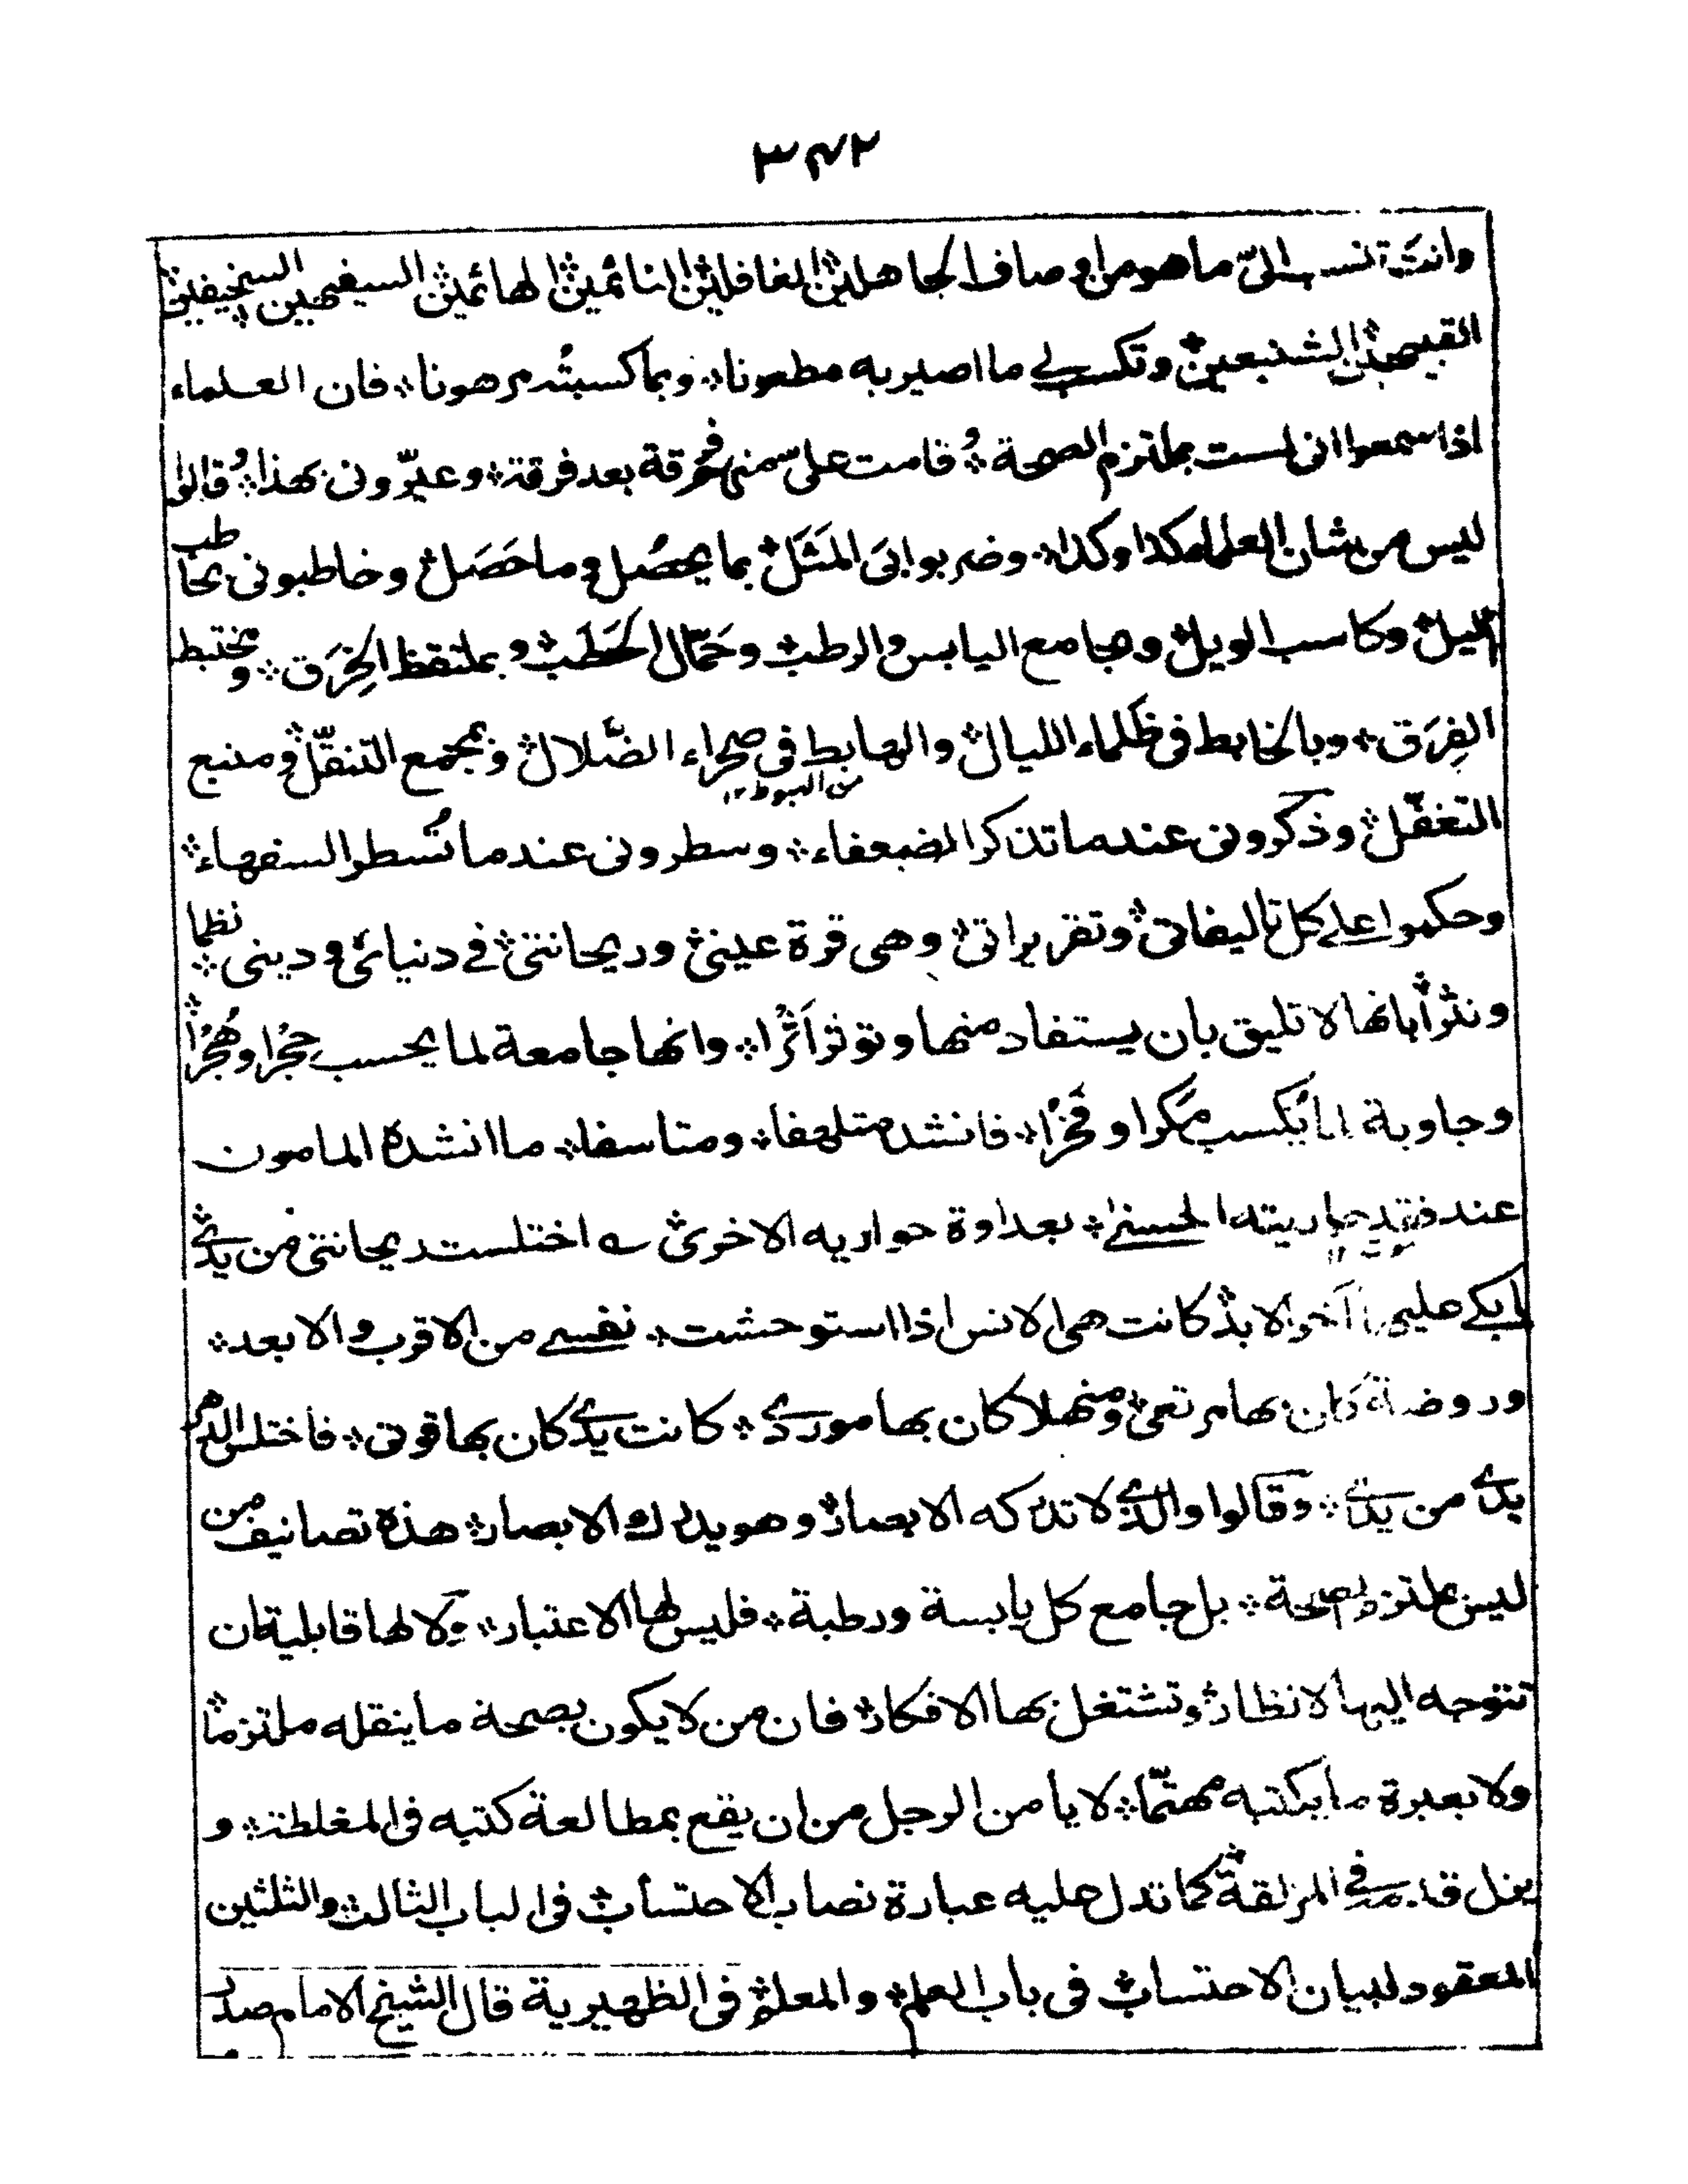 ٣٤٢
وانت تنسب الىّ ما هو من اوصاف الجاهلين الغافلين النائمين الهائمين السفيهين السخيفين
القبيحين الشنيعين وتكسب لي ما اصير به مطعونا وبما كسبتُه مرهونا فان العلماء
اذا سمعوا انى لست بملتزم الصحة قامت على منهم فرقة بعد فرقة وعيّرونى بهذا وقالوا
ليس من شان العلماء كذا وكذا وضربوا بىَ المَثَل بما يحصُل وما حَصَل وخاطبونى بحاطب
الليل وكاسب الويل وجامع اليابس والرطب وحَمّال الحَطَب وبملتقط الخِرَق ومختبط
الفِرَق وبالخابط فى ظلماء الليال والهابط فى صحراء الضّلال وبمجمع التنقّل ومنبع
من الهبوط ١٢
التغفّل وذكرونى عند ما تذكر الضعفاء وسطرونى عند ما تُسطر السفهاء
وحكموا على كل تاليفاتى وتقريراتى وهى قرة عينى وريحانتى في دنيائى ودينى نظما
ونثرا بانها لا تليق بان يستفاد منها وتوثر اَثَرا وانها جامعة لما يحسب حِجْرا وهُجْرا
وجاوية لما يُكسب مَكرا وفَخْرا فانشد متلهفا ومتاسفا ما انشده المامون
عند فقد جاريته الحسنىٰ بعداوة جواريه الاخرىٰ اختلست ريحانتى من يدي
ابكي عليها آخر الابد كانت هى الانس اذا استوحشت نفسي من الاقرب والابعد
وروضة كان بها مرتعى ومنهلا كان بها موردي كانت يدي كان بها قوتى فاختلس الدهر
يدي من يدي وقالوا والذي لا تدركه الابصار وهو يدرك الابصار هذه تصانيف من
ليس بملتزم الصحة بل جامع كل يابسة ورطبة فليس لها الاعتبار ولا لها قابلية ان
تتوجه اليها الانظار وتشتغل بها الافكار فان من لا يكون بصحة ما ينقله ملتزما
ولا بعبرة ما يكتبه مهتمّا لا يأمن الرجل من ان يقع بمطالعة كتبه فى المغلطة و
يزل قدمه في المزلقة كما تدل عليه عبارة نصاب الاحتساب فى الباب الثالث والثلثين
المعقود لبيان الاحتساب فى باب العلم والمعلم فى الظهيرية قال الشيخ الامام صدر